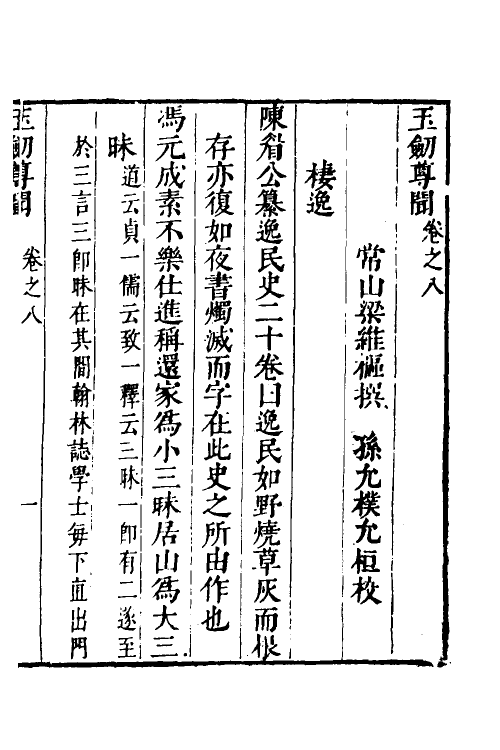 玉劒尊聞 卷之八
常山梁維樞撰 孫允樸允桓校
棲逸
陳眉公纂逸民史二十卷曰逸民如野燒草灰而根
存亦復如夜書燭滅而字在此史之所由作也
馮元成素不樂仕進稱還家爲小三昧居山爲大三
昧道云貞一儒云致一釋云三昧一卽有二遂至
於三言三卽昧在其間翰林誌學士每下直出門
玉劒尊聞 卷之八 一